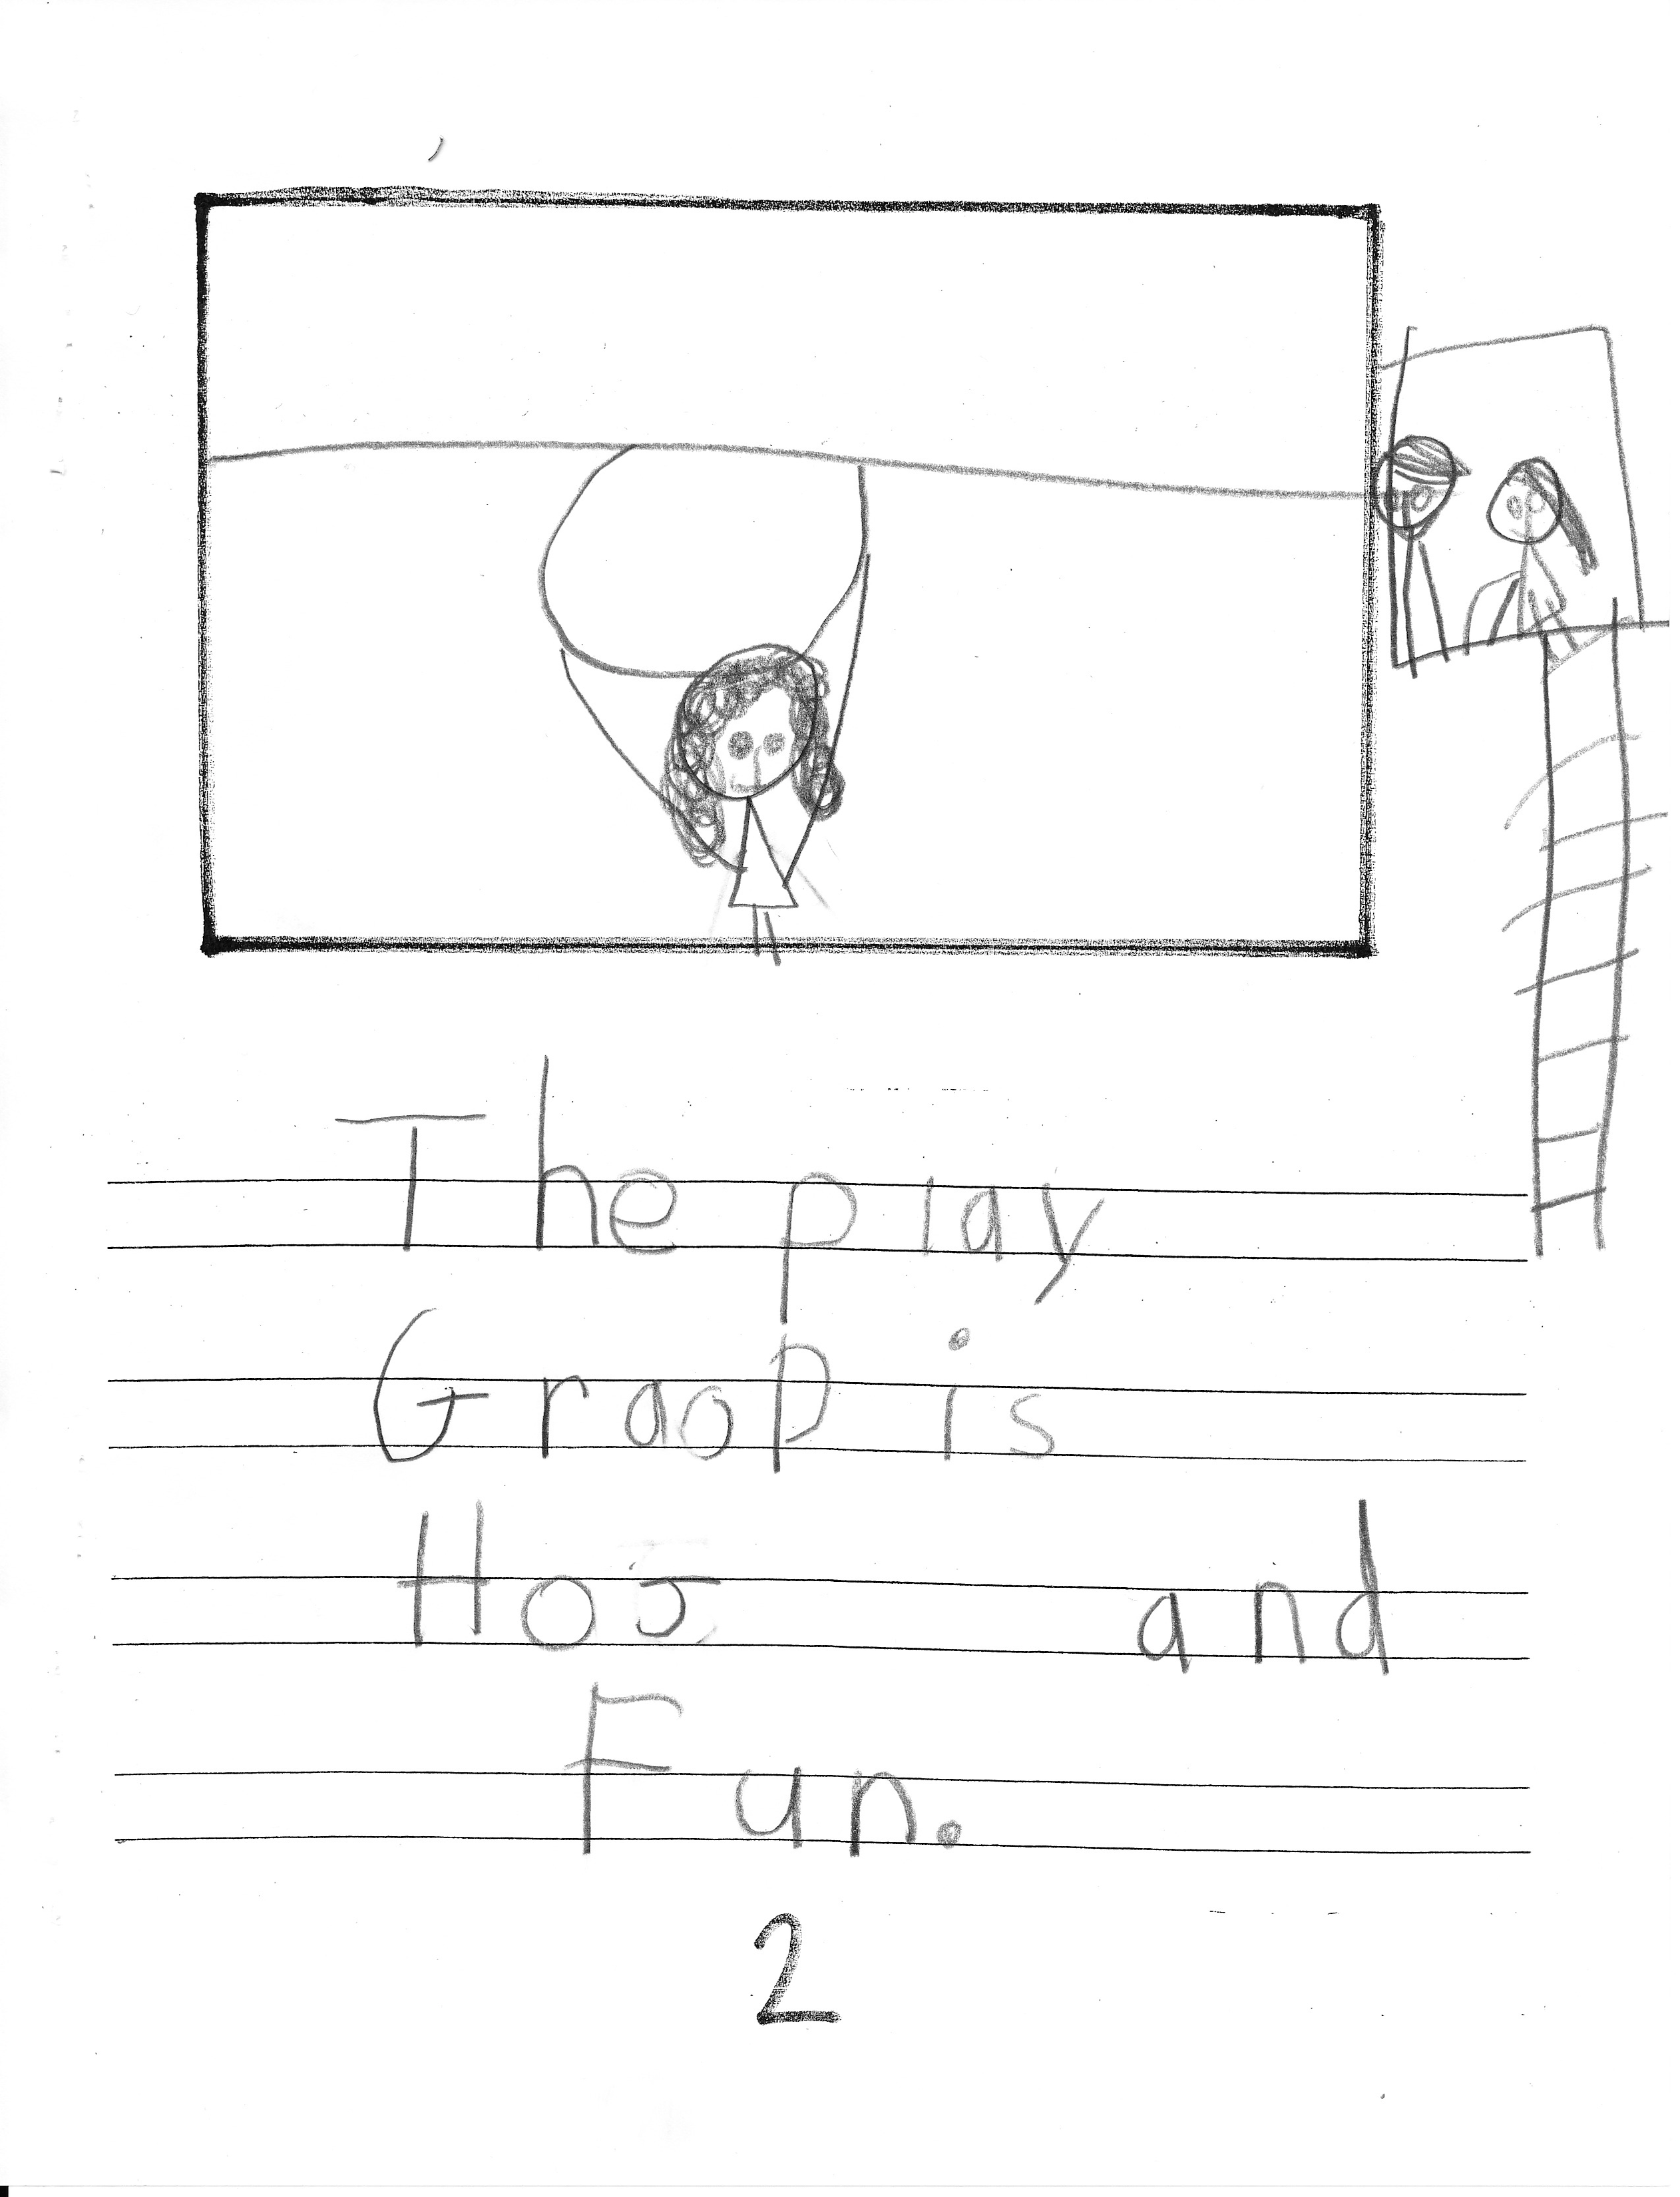 The play
Graop is
Hot and
Fun.
2